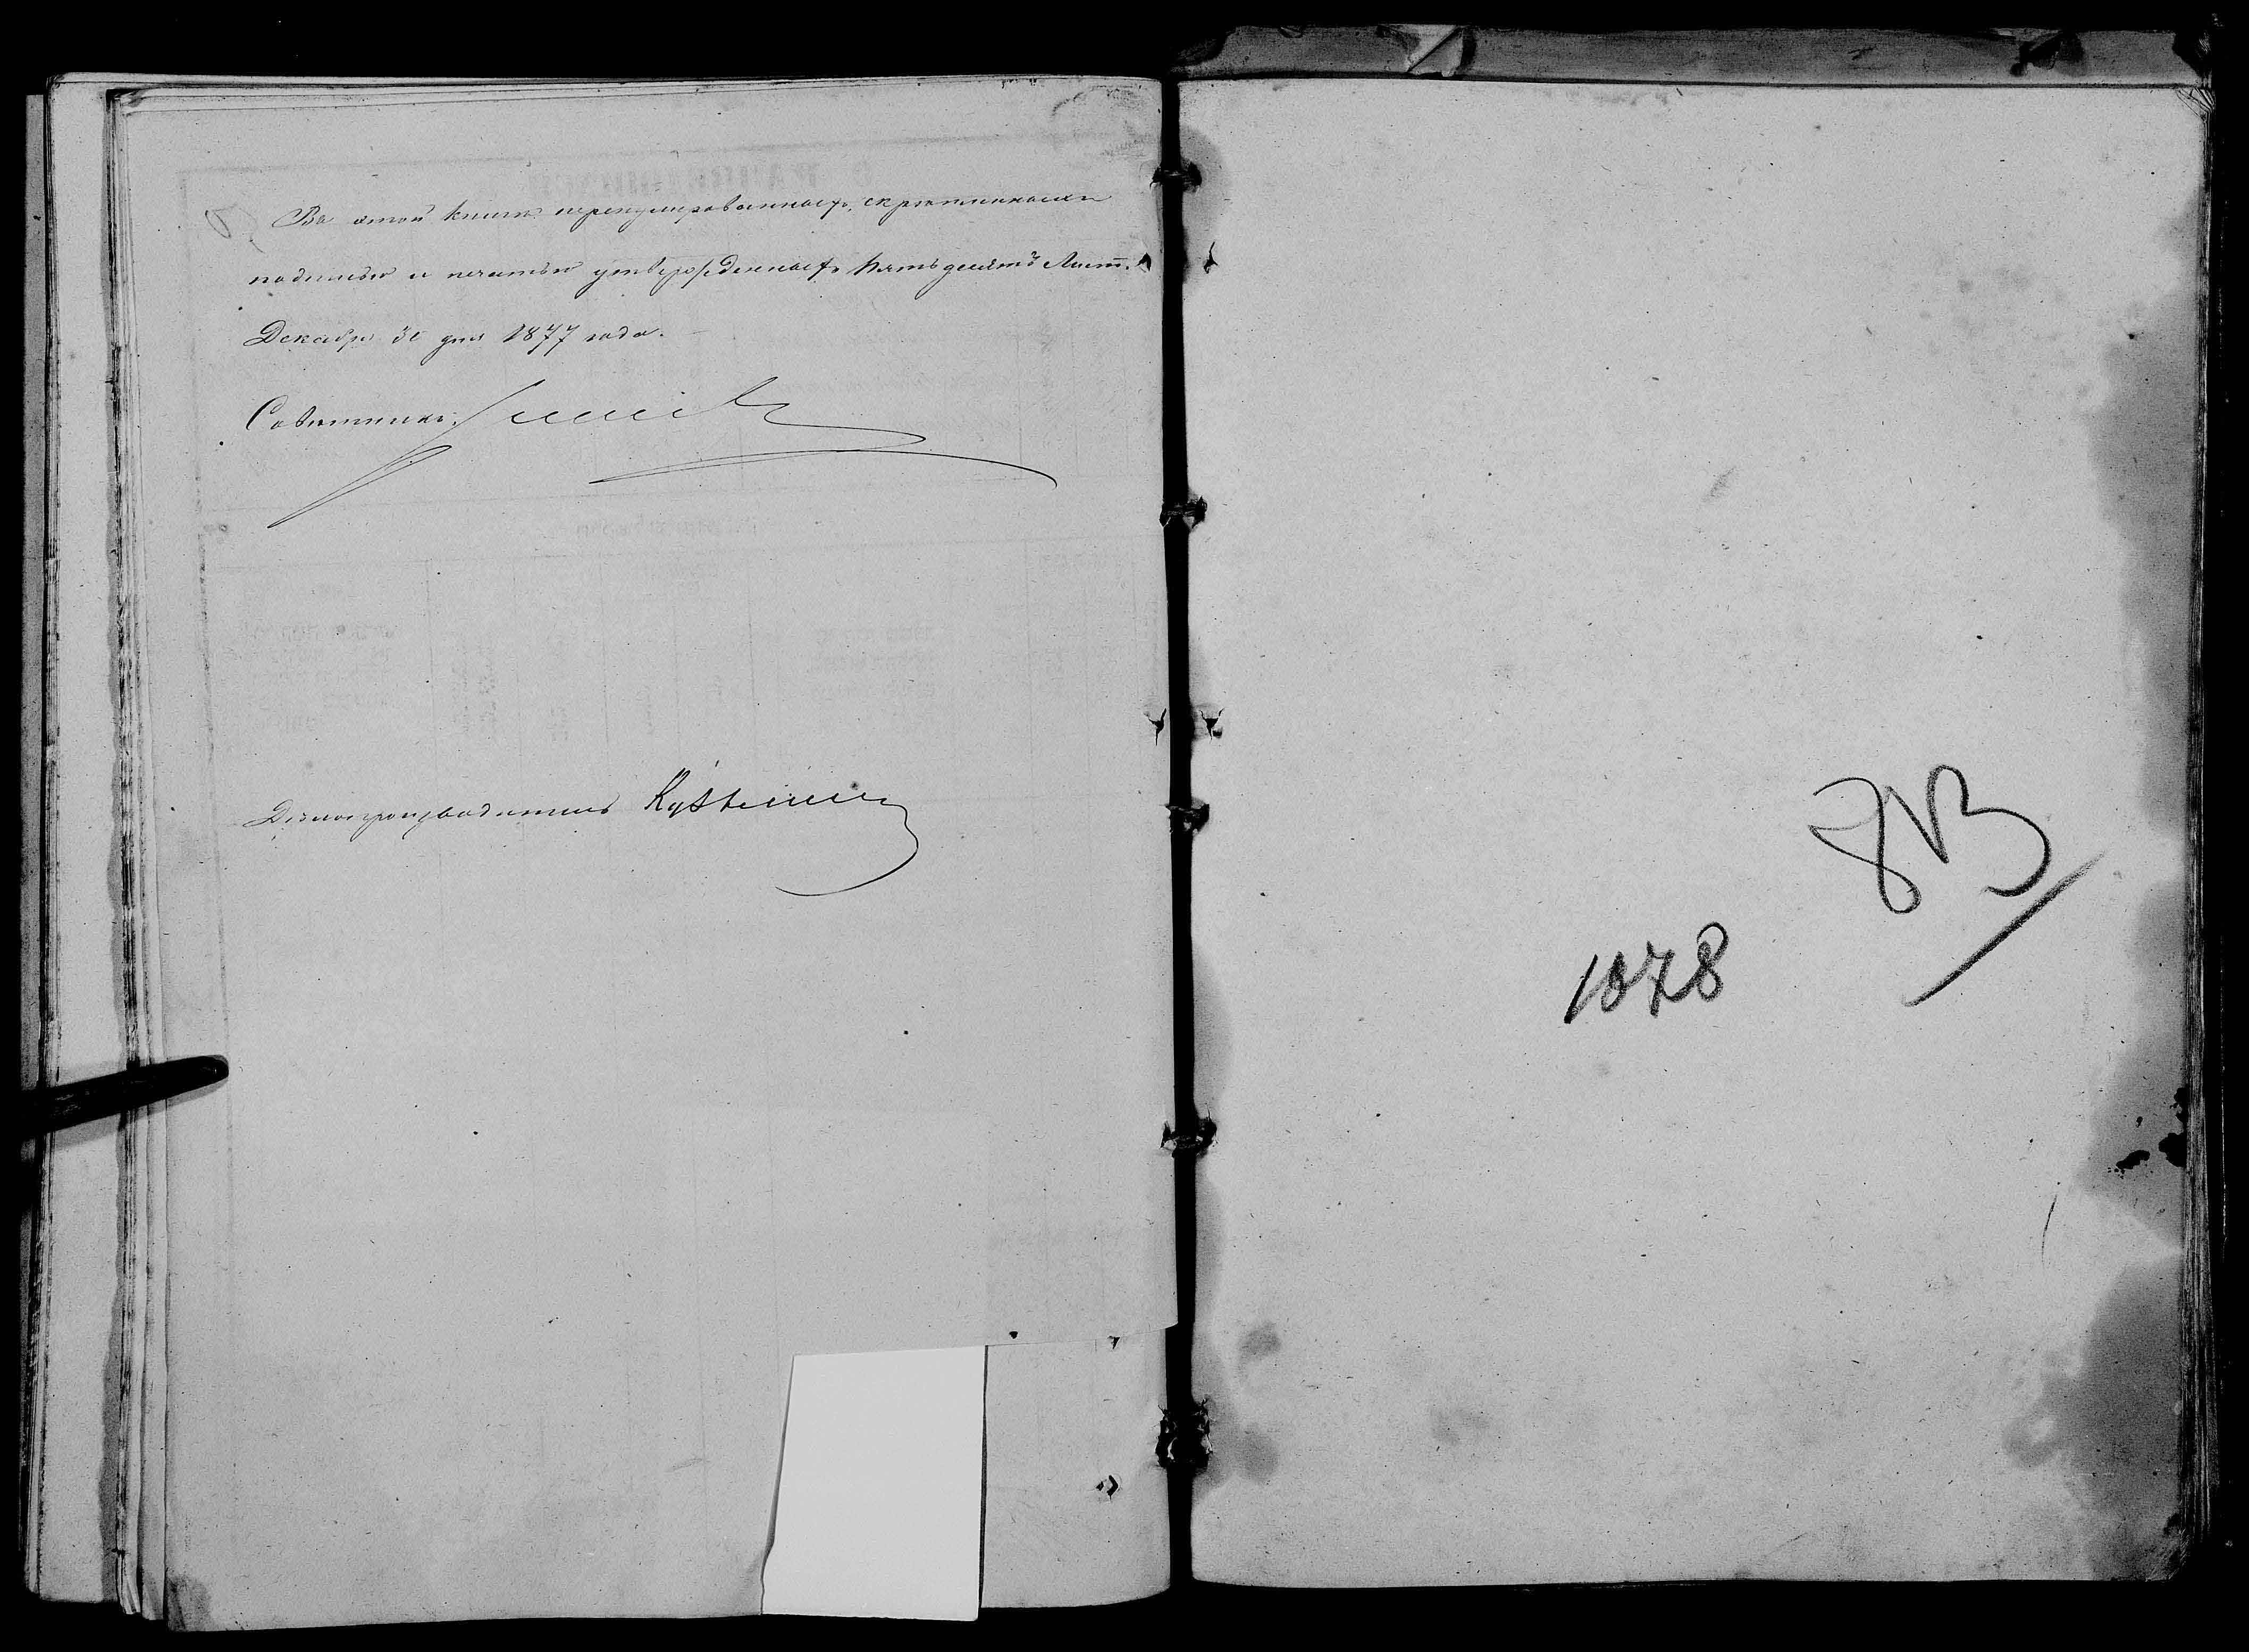 Въ этой книгѣ перенумерованныхъ, скрѣпленныхъ
подписью и печатью утвержденныхъ пятьдесятъ Лист.
Декабря 30 дня 1877 года.
Совѣтникъ
Дѣлопроизводитель
83
1878